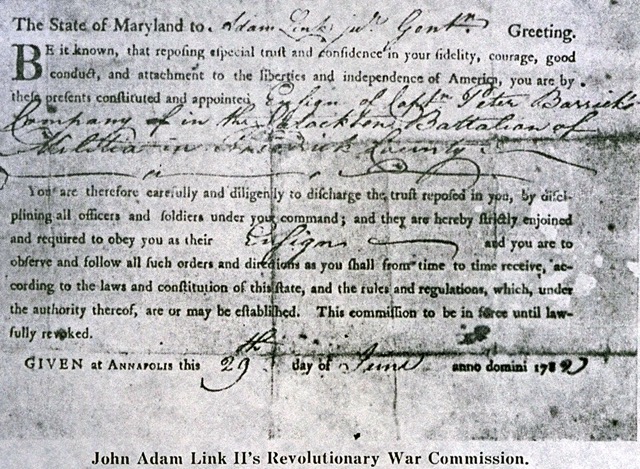 The State of Maryland to Adam Link junr. Gentn. Greeting.
BE it known, that reposing especial trust and confidence in your fidelity, courage, good
conduct, and attachment to the liberties and independence of America, you are by
these presents constituted and appointed Ensign of Captn. Peter Barrick's
Company of in the Battalion of
Militia in Frederick County
You are therefore carefully and diligently to discharge the trust reposed in you, by disci-
plining all officers and soldiers under your command; and they are hereby strictly enjoined
and required to obey you as their Ensign and you are to
observe and follow all such orders and directions as you shall from time to time receive, ac-
cording to the laws and constitution of this state, and the rules and regulations, which, under
the authority thereof, are or may be established. This commission to be in force until law-
fully revoked.
GIVEN at ANNAPOLIS this 29th day of June anno domini
John Adam Link II's Revolutionary War Commission.